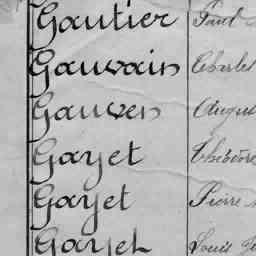 Gautier Paul
Gauvain Charles
Gauven Augus
Gayet Théodore
Gayet Pierre
Gayet Louis